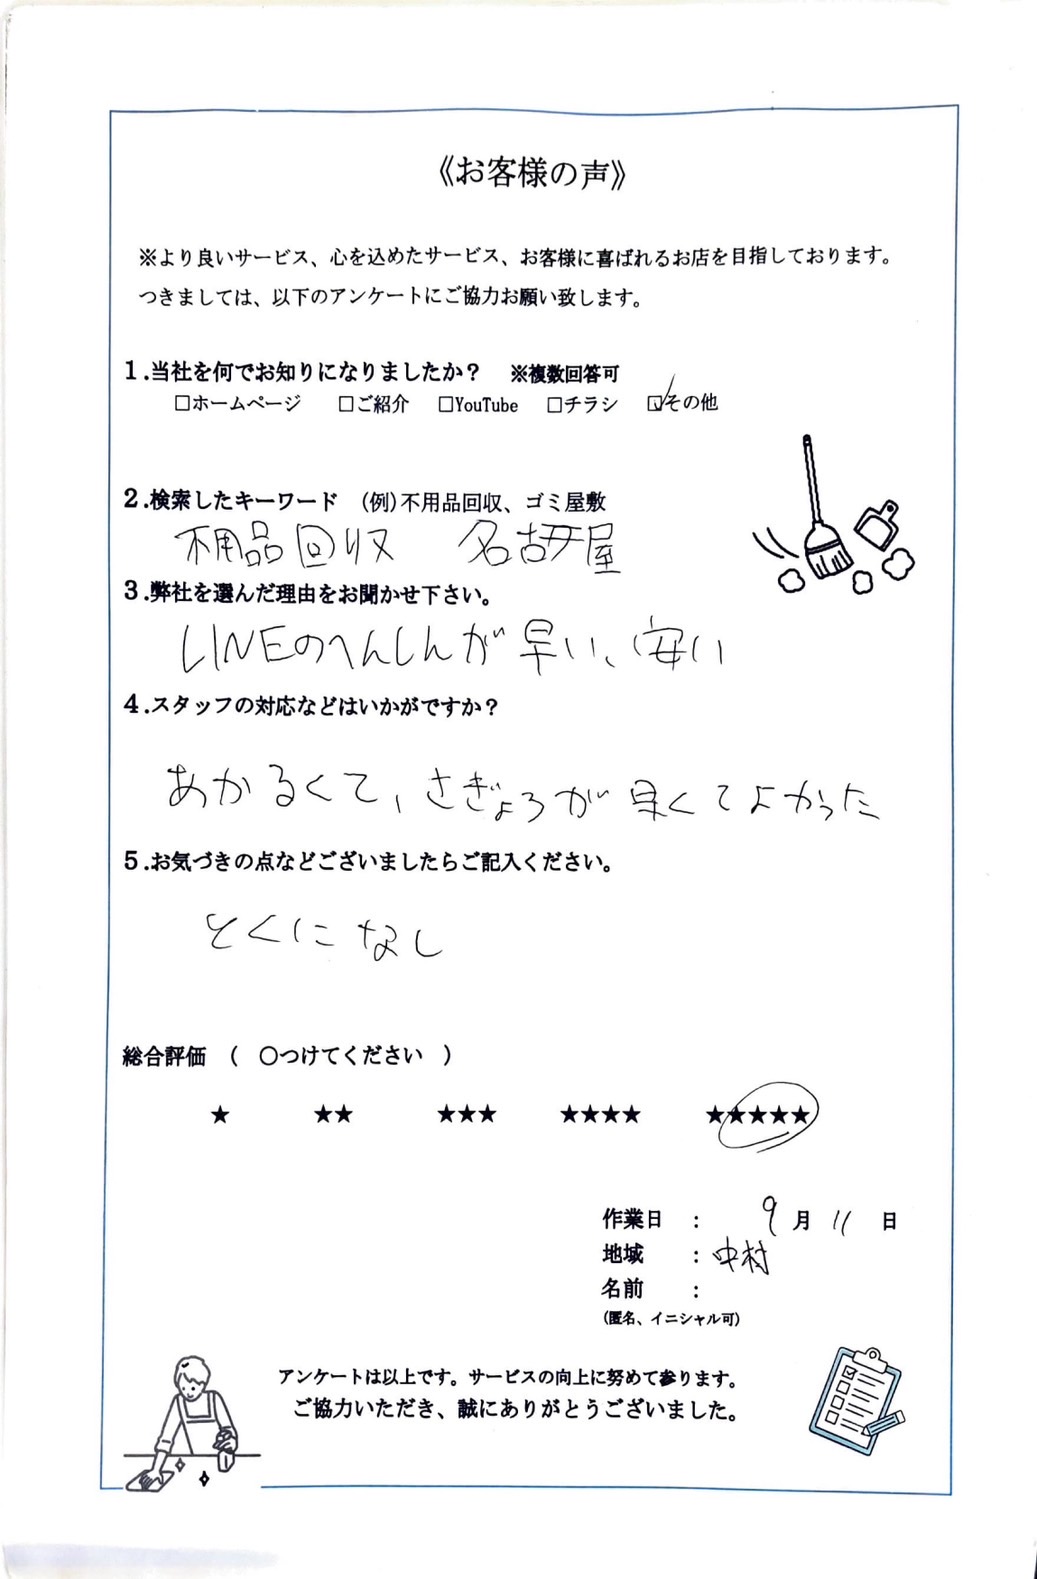 《お客様の声》
※より良いサービス、心を込めたサービス、お客様に喜ばれるお店を目指しております。
つきましては、以下のアンケートにご協力お願い致します。
1.当社を何でお知りになりましたか？ ※複数回答可
□ホームページ □ご紹介 □YouTube □チラシ ☑その他
2.検索したキーワード (例)不用品回収、ゴミ屋敷
不用品回収 名古屋
3.弊社を選んだ理由をお聞かせ下さい。
LINEのへんしんが早い、安い
4.スタッフの対応などはいかがですか？
あかるくて、さぎょうが早くてよかった
5.お気づきの点などございましたらご記入ください。
とくになし
総合評価 ( ○つけてください )
★ ★★ ★★★ ★★★★ ★★★★★
作業日 ： 9月11日
地域 ： 中村
名前 ：
(匿名、イニシャル可)
アンケートは以上です。サービスの向上に努めて参ります。
ご協力いただき、誠にありがとうございました。